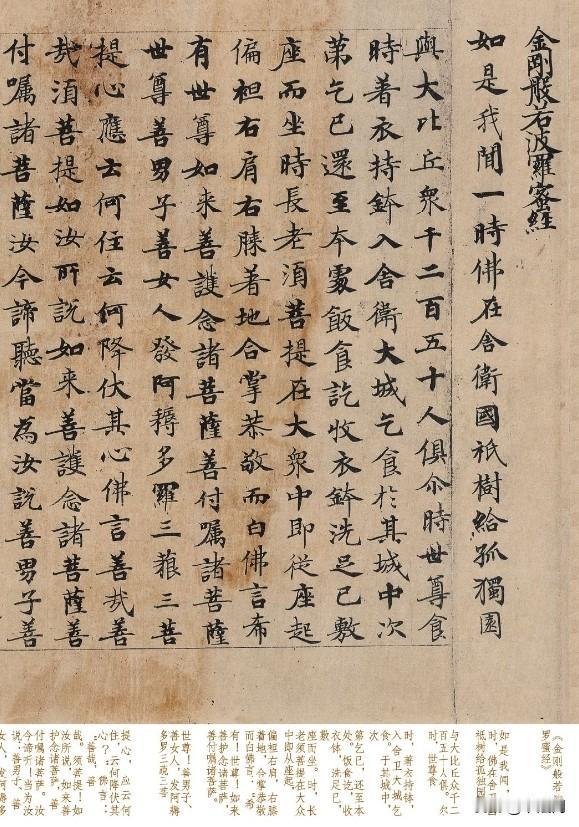 金剛般若波羅蜜經
如是我聞一時佛在舍衛國祇樹給孤獨園
與大比丘衆千二百五十人俱尒時世尊食
時著衣持鉢入舍衛大城乞食於其城中次
苐乞已還至夲處飯食訖收衣鉢洗足已敷
座而坐時長老湏菩提在大衆中即從座起
偏袒右肩右膝著地合掌恭敬而白佛言希
有世尊如来善護念諸菩薩善付嘱諸菩薩
世尊善男子善女人發阿耨多羅三藐三菩
提心應云何住云何降伏其心佛言善哉善
哉湏菩提如汝所說如来善護念諸菩薩善
付嘱諸菩薩汝今諦聽當為汝說善男子善
《金刚般若波
罗蜜经》
如是我闻，一
时，佛在舍卫国
祇树给孤独园，
与大比丘众千二
百五十人俱。尔
时，世尊食
时，著衣持钵，
入舍卫大城乞
食。于其城中，
次
第乞已，还至本
处。饭食讫，收
衣钵，洗足已，
敷
座而坐。时，长
老须菩提在大众
中即从座起，
偏袒右肩，右膝
着地，合掌恭敬
而白佛言：“希
有！世尊！如来
善护念诸菩萨，
善付嘱诸菩萨。
世尊！善男子、
善女人，发阿耨
多罗三藐三菩
提心，应云何
住？云何降伏其
心？”佛言：
“善哉，善
哉。须菩提！如
汝所说，如来善
护念诸菩萨，善
付嘱诸菩萨。汝
今谛听！当为汝
说：善男子、善
女人，发阿耨多